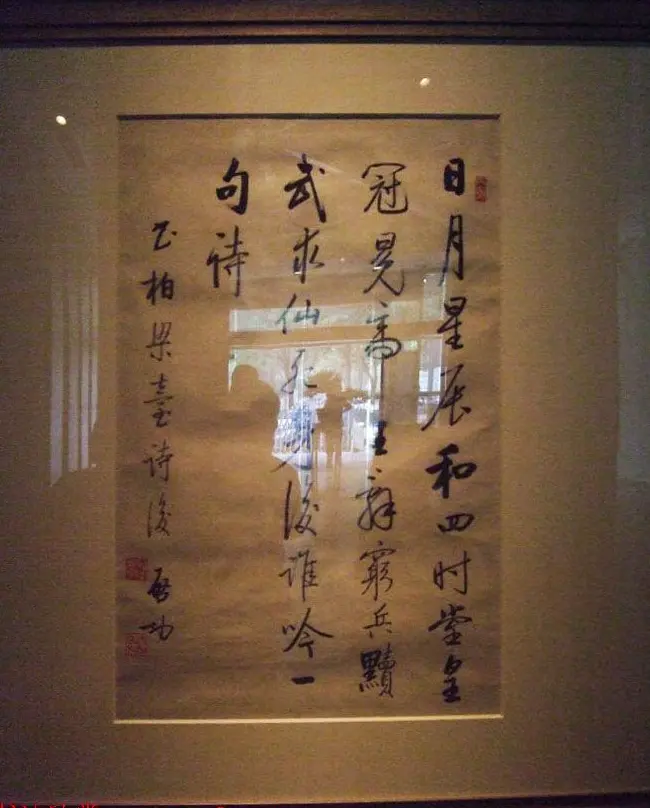 日月星辰和四时堂皇
冠冕帝王辞穷兵黩
武求仙无算后谁吟一
句诗
书柏梁臺诗後
启功